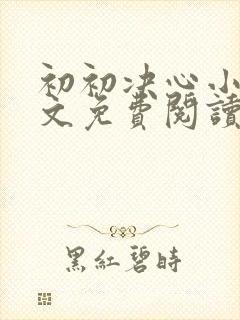 初初决心小
文免費閱讀
黑紅碧時